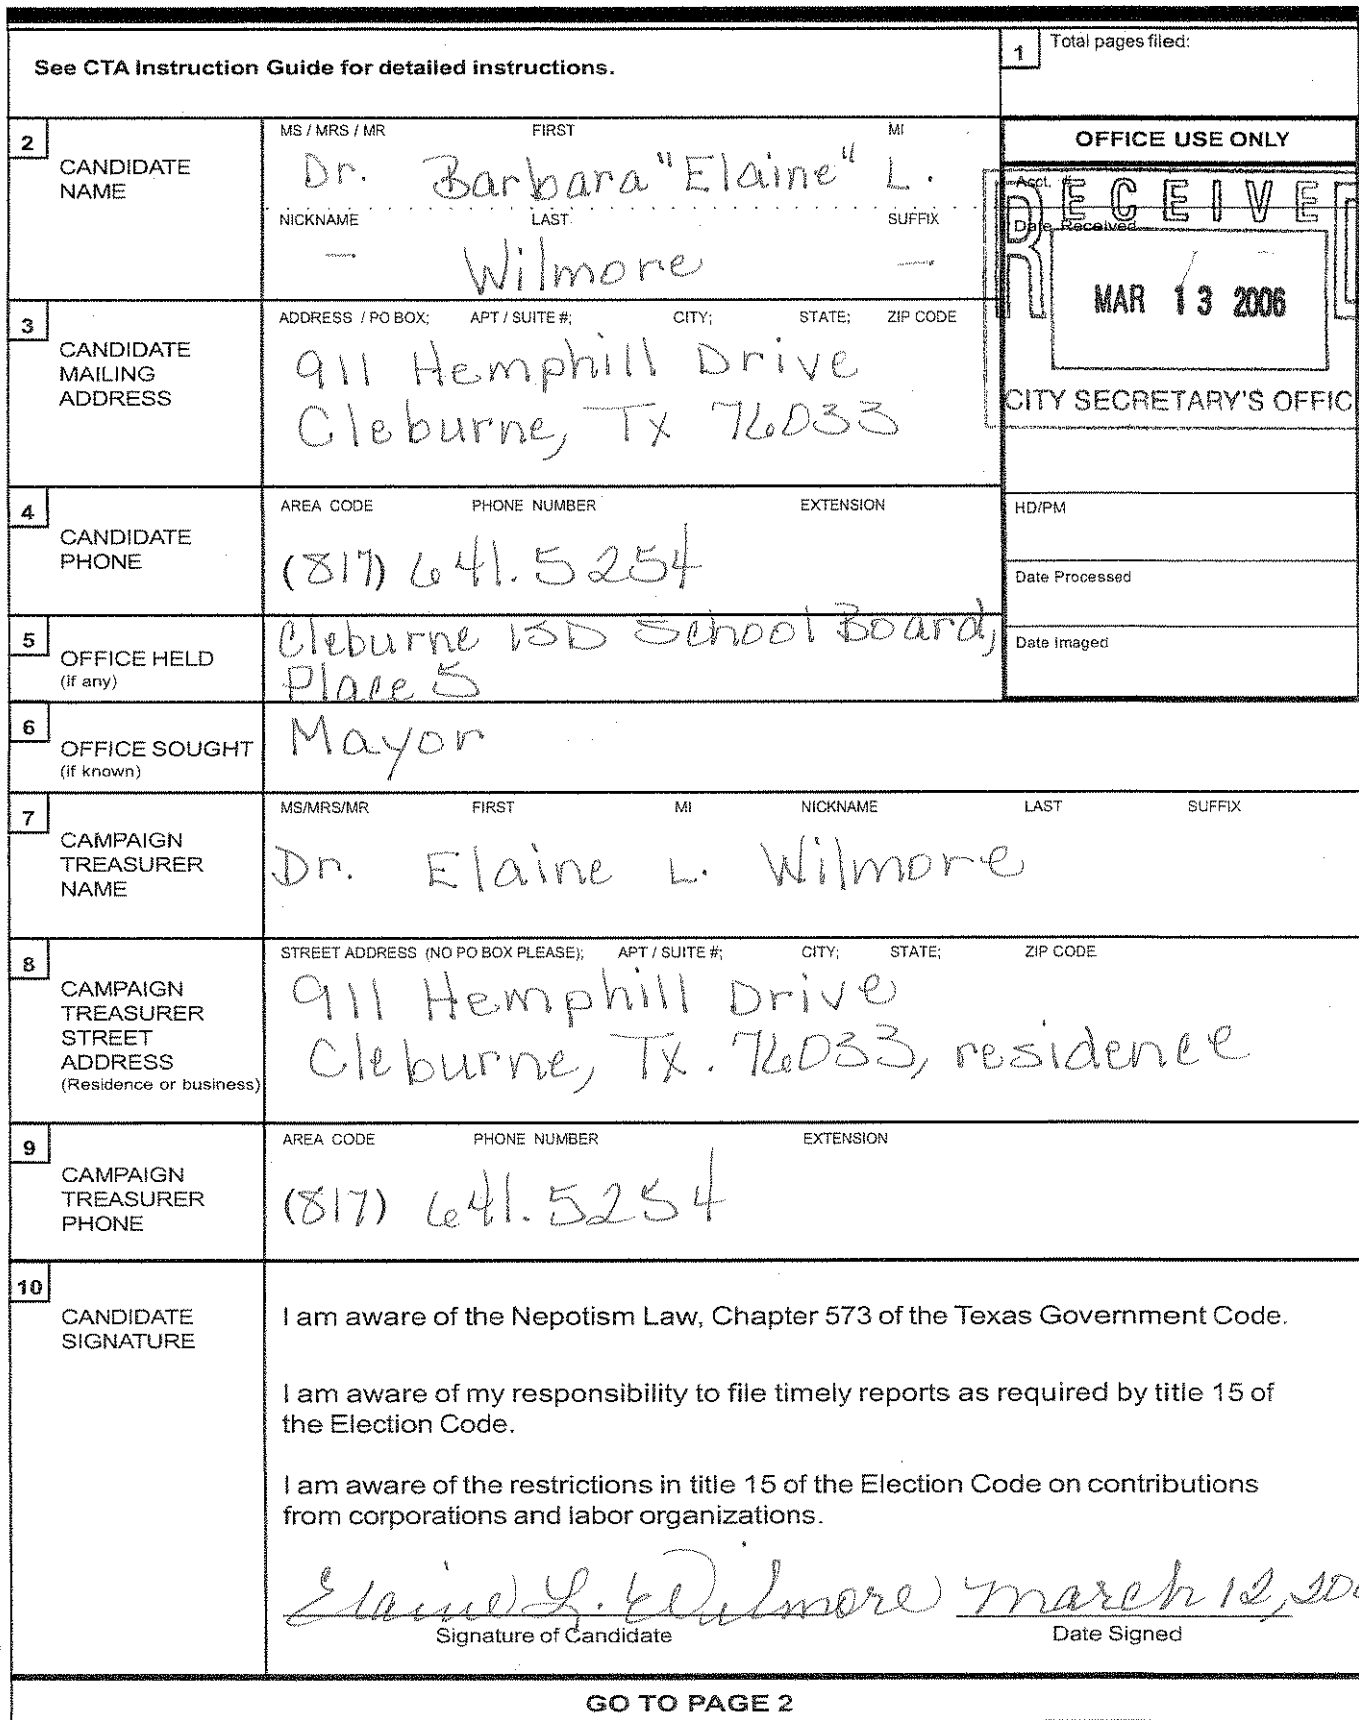 See CTA Instruction Guide for detailed instructions.
1 Total pages filed:
2 CANDIDATE NAME
MS / MRS / MR FIRST MI
Dr. Barbara "Elaine" L.
NICKNAME LAST SUFFIX
— Wilmore —
OFFICE USE ONLY
Acct. #
RECEIVED
Date Received
MAR 13 2006
CITY SECRETARY'S OFFIC
3 CANDIDATE MAILING ADDRESS
ADDRESS / PO BOX; APT / SUITE #; CITY; STATE; ZIP CODE
911 Hemphill Drive
Cleburne, Tx 76033
4 CANDIDATE PHONE
AREA CODE PHONE NUMBER EXTENSION
(817) 641.5254
HD/PM
Date Processed
Date Imaged
5 OFFICE HELD (if any)
Cleburne ISD School Board,
Place 5
6 OFFICE SOUGHT (if known)
Mayor
7 CAMPAIGN TREASURER NAME
MS/MRS/MR FIRST MI NICKNAME LAST SUFFIX
Dr. Elaine L. Wilmore
8 CAMPAIGN TREASURER STREET ADDRESS (Residence or business)
STREET ADDRESS (NO PO BOX PLEASE); APT / SUITE #; CITY; STATE; ZIP CODE
911 Hemphill Drive
Cleburne, Tx. 76033, residence
9 CAMPAIGN TREASURER PHONE
AREA CODE PHONE NUMBER EXTENSION
(817) 641.5254
10 CANDIDATE SIGNATURE
I am aware of the Nepotism Law, Chapter 573 of the Texas Government Code.
I am aware of my responsibility to file timely reports as required by title 15 of
the Election Code.
I am aware of the restrictions in title 15 of the Election Code on contributions
from corporations and labor organizations.
Elaine L. Wilmore March 12, 200
Signature of Candidate Date Signed
GO TO PAGE 2